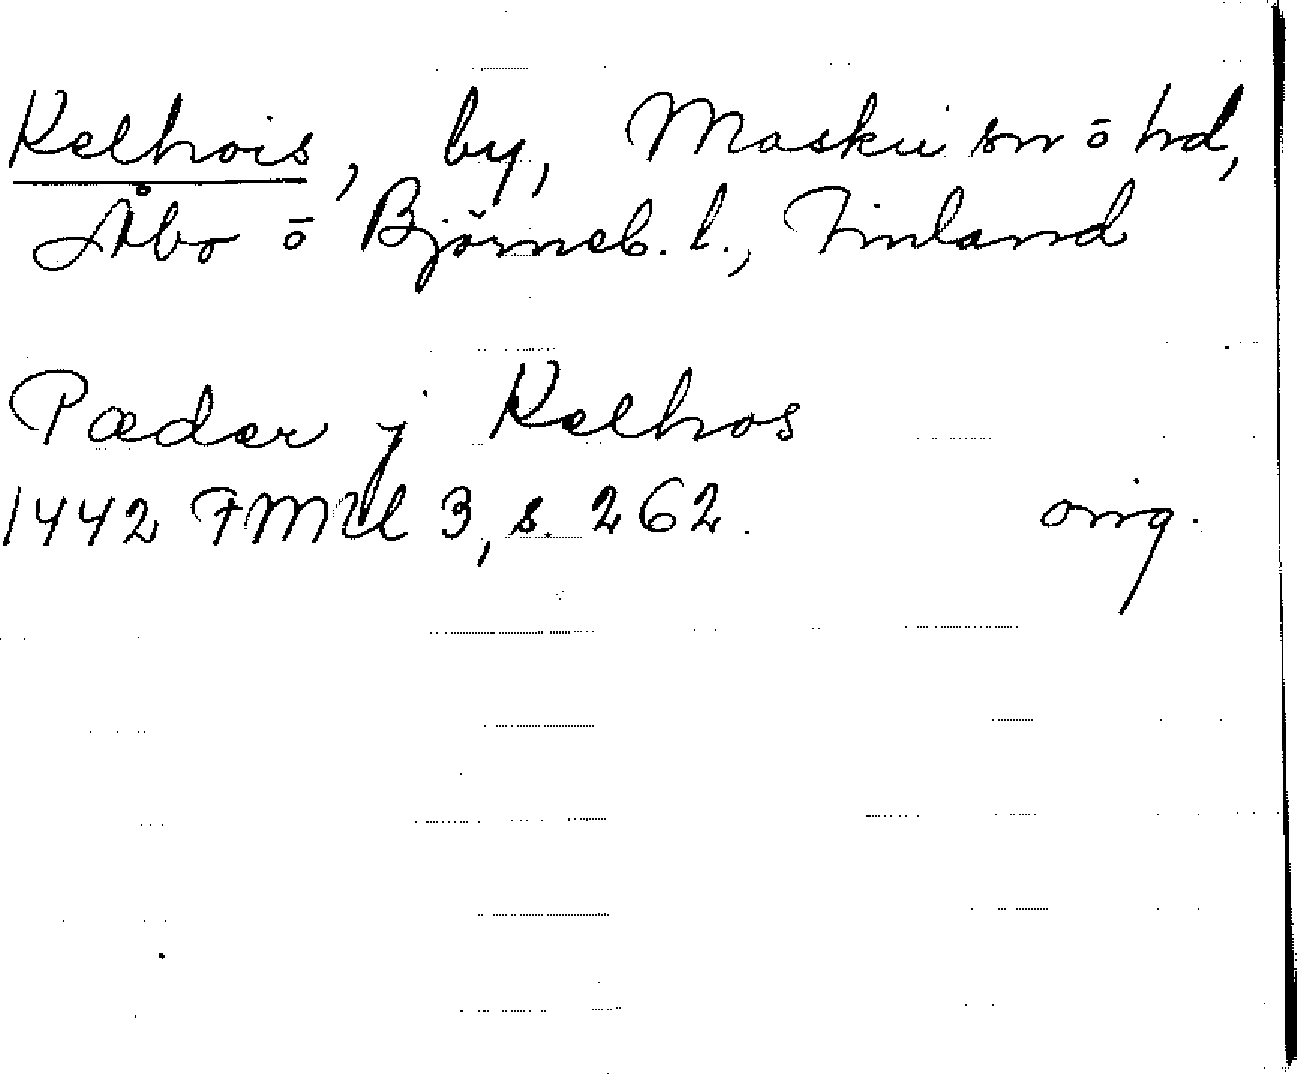 Kelhois, by, Masku sn ō hd,
Åbo ō Björneb. l., Finland
Pæder j Kelhos
1442 FMU 3, s. 262. orig.